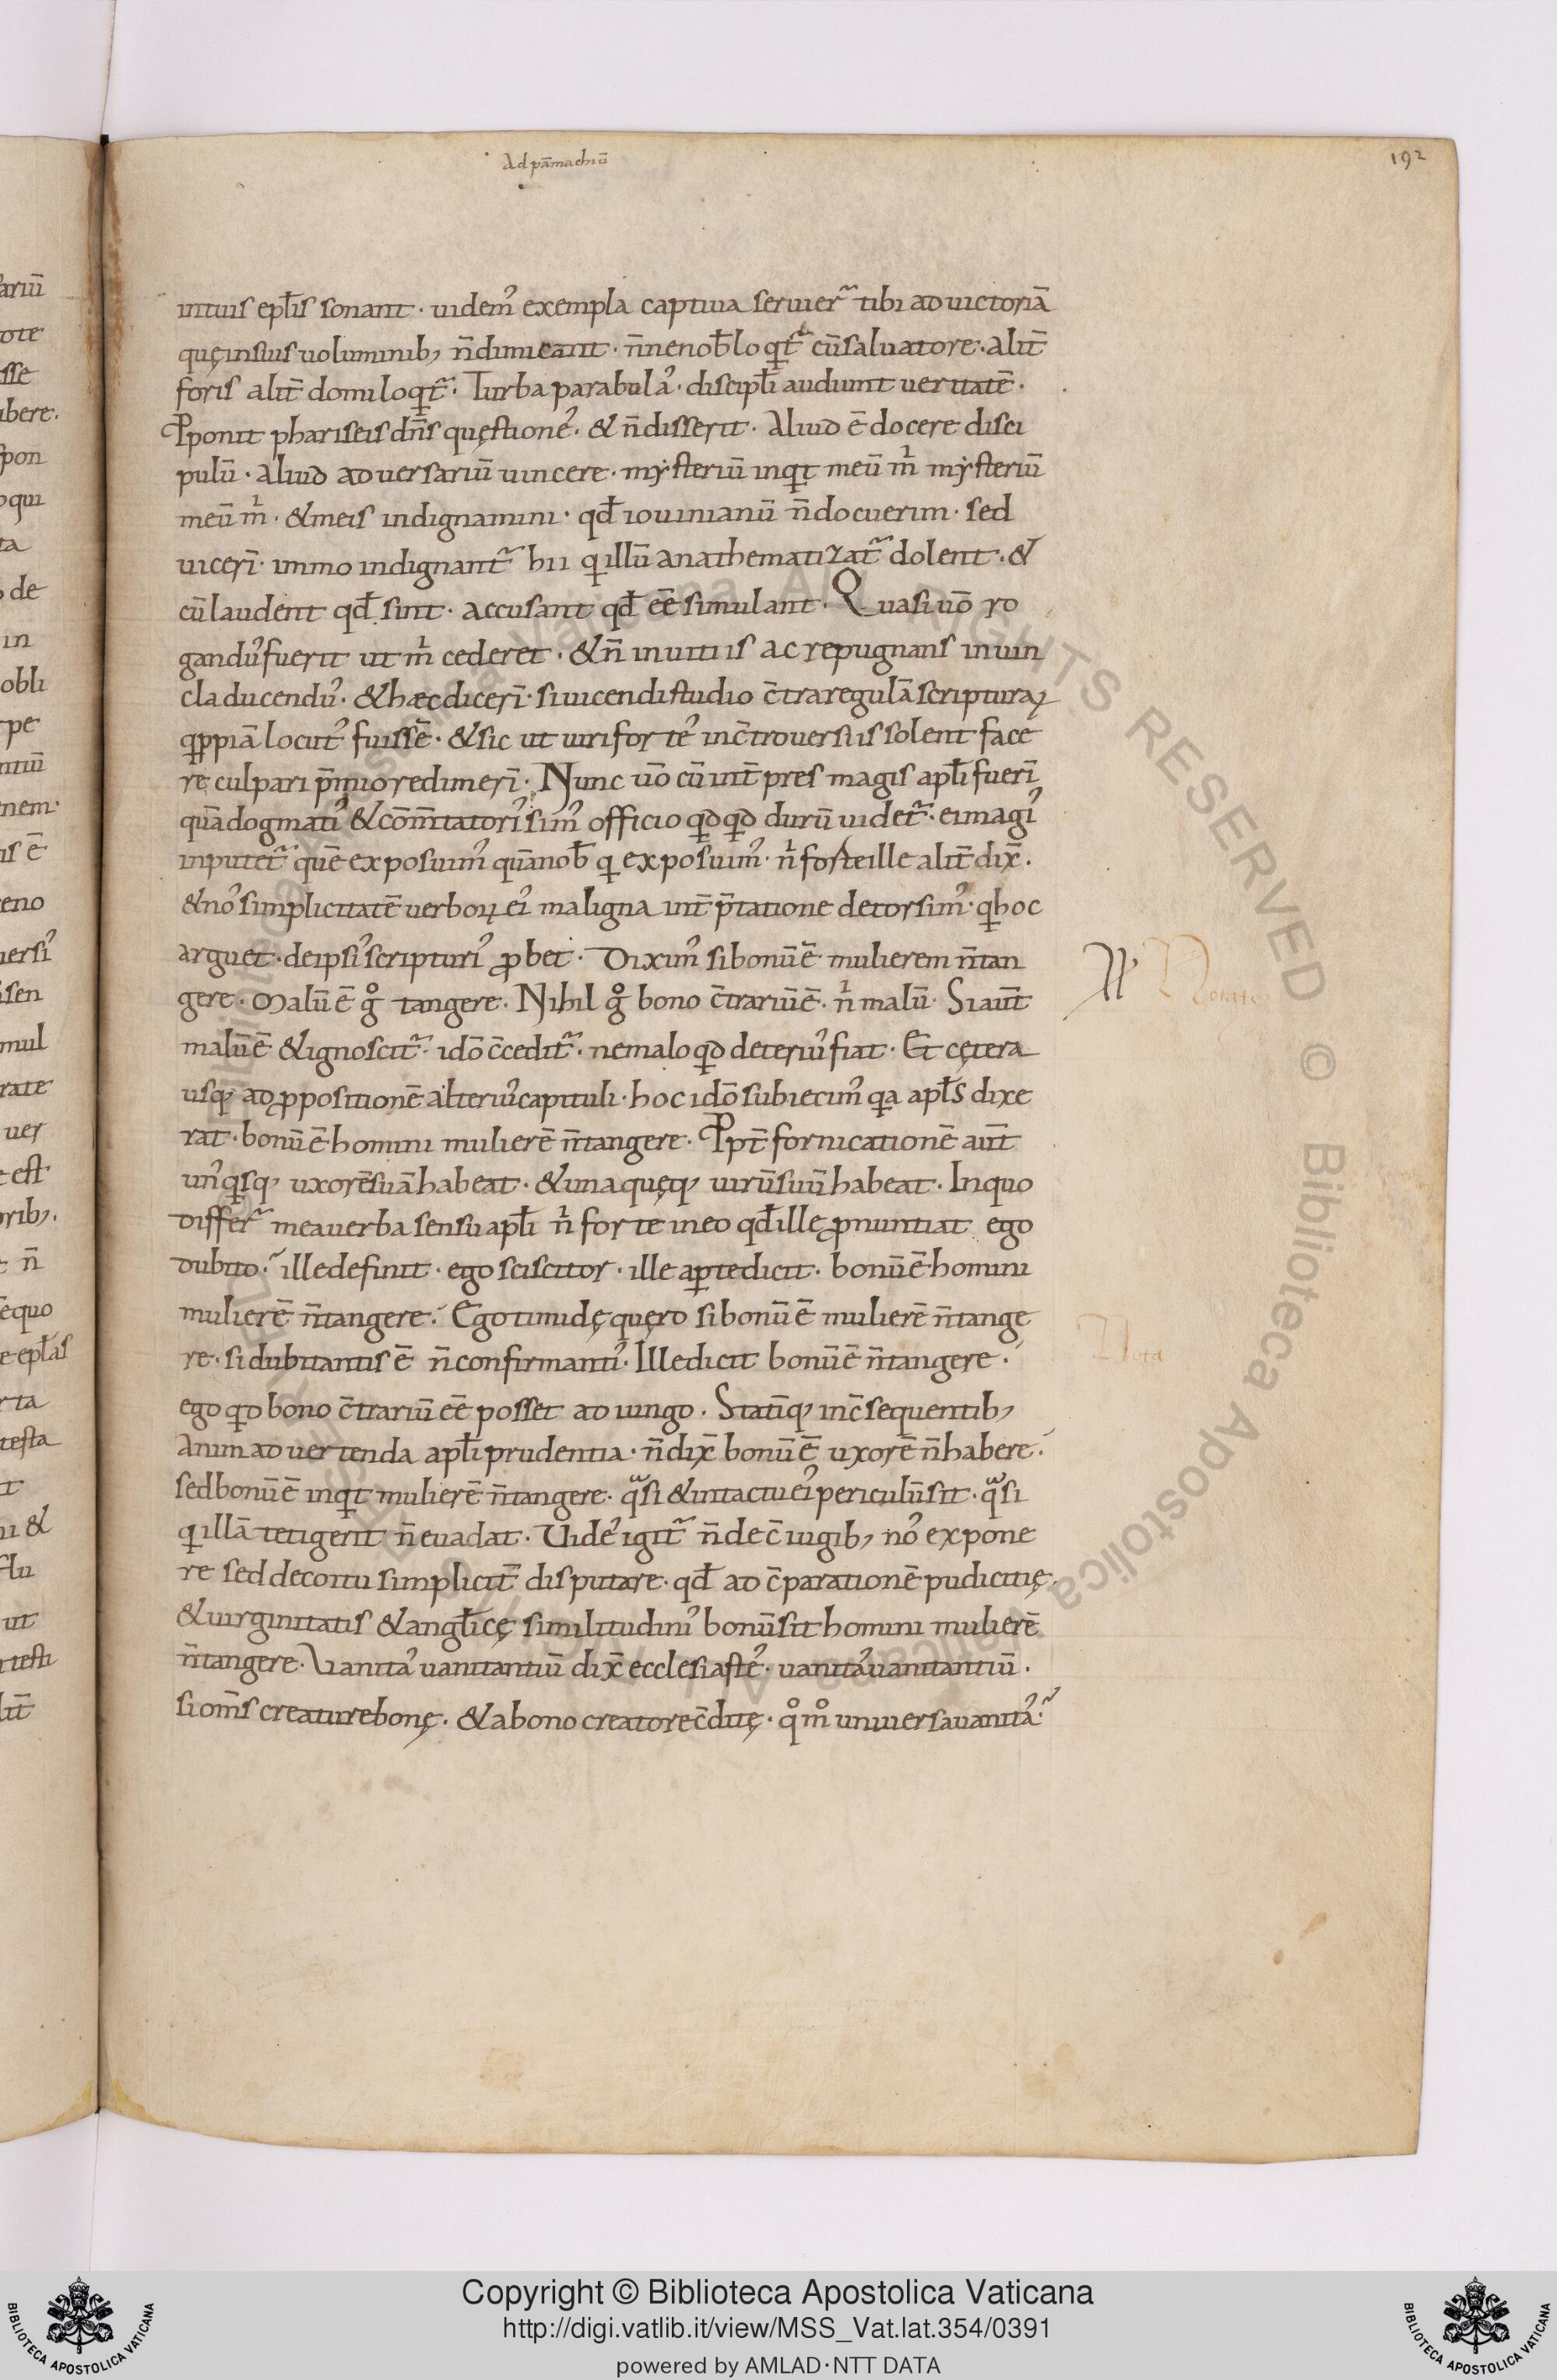 Ad pāmachiū
192
intuis epłis sonant · uidem᾽ exempla captiua seruier̃ tibi ad uictoriā
quęinsuis uoluminib; n̄dimicant · n̄nenobł loqit̃ cūsaluatore · alit̄
foris alit̄ domiloqit̃ · Turba parabulā · discipłi audiunt ueritatē ·
Pponit phariseis dn̄s quęstionē · & n̄disserit · Aliud ē docere disci
pulū · aliud aduersariū uincere · mẏsteriū inqit meū m̍ mẏsteriū
meū m̍ · &meis indignamini · qđ iouinianū n̄docuerim · sed
uicerī · immo indignant̃ hii qillū anathematizat̃ dolent · &
cū laudent qđ sint · accusant qđ eē simulant · Quasi uō ro
gand᾽fuerit ut m̍ cederet · &n̄ inuitus ac repugnans inuin
cla ducend᾽ · &hæc dicerī · siuicendi studio c̄traregulā scripturaꝝ
qppiā locut᾽ fuissē · &sic ut uirifortē inc̄trouersiis solent face
re culpari p̄mioredimerī · Nunc uō cū int̄pres magis apłi fuerī
quādogmati᾽ &com̄tatori᾽sim᾽ officio qdqd durū uidet̃ · eimagi᾽
inputet̃ quē exposuim᾽ quānobł q exposuim᾽ · n̍ forteille alit̄ dix̄ ·
&no᾽ simplicitatē uerboꝝ ei᾽ maligna int̄p̄tatione detorsim᾽ · qhoc
arguet · deipsi᾽scripturi᾽ ꝓbet · Dixim᾽ sibonūē mulierem n̄tan
gere · Malūē g̊ tangere · Nihil g̊ bono c̄trariūē · n̍ malū · Siaut̄
malūē &ignoscit̃ · idō c̄cedit̃ · nemaloqd deteriu᾽fiat · Et cętera
usq; adꝓpositionē alteriu᾽capituli · hoc idō subiecim᾽ qa apłs dixe
rat · bonūē homini mulierē n̄tangere · Ppt̄ fornicationē aut̄
un᾽qisq; uxorēsuāhabeat · &unaquęq; uirūsuūhabeat · Inquo
differ̃ meauerba sensuapłi n̍ forte ineo qđille ꝓnuntiat ego
dubito · ille definit · ego sciscitor · ille aꝑtedicit · bonūē homini
mulierē n̄tangere · Ego timidę quęro sibonūē mulierē n̄tange
re · si dubitantis ē n̄ confirmanti᾽ · Ille dicit bonūē n̄tangere ·
ego qd bono c̄trariū eē posset adiungo · Statīq; inc̄sequentib;
Animaduertenda apłi prudentia · n̄dix̄ bonūē uxorē n̄habere ·
sedbonūē inqit mulierē n̄tangere · qasi &intactuei᾽ periculūsit · qasi
qillā tetigerit n̄euadat · Uide᾽ igit̃ n̄de c̄iugib; no᾽ expone
re sed decoitu simplicit̄ disputare · qđ ad c̄parationē pudicitię
&uirginitatis &angłicę similitudini᾽ bonūsit homini mulierē
n̄tangere · Vanita᾽ uanitantiū dix̄ ecclesiaste᾽ · uanita᾽uanitantiū ·
siom̄s creaturebonę · &abono creatorec̄ditę · qm̊ uniuersauanita᾽ ·
Notate
Nota
ariū
ote
sse
ibere ·
pon
oqui
ta
de
in
obli
pe
ntiū
nem ·
is ē
eno
uersi᾽
sen
mul
rate
uer
est
rib; ·
n̄
equo
epłas
rta
testa
ii &
ut
testi
lit̄
Copyright © Biblioteca Apostolica Vaticana
http://digi.vatlib.it/view/MSS_Vat.lat.354/0391
powered by AMLAD·NTT DATA
BIBLIOTECA APOSTOLICA VATICANA
BIBLIOTECA APOSTOLICA VATICANA